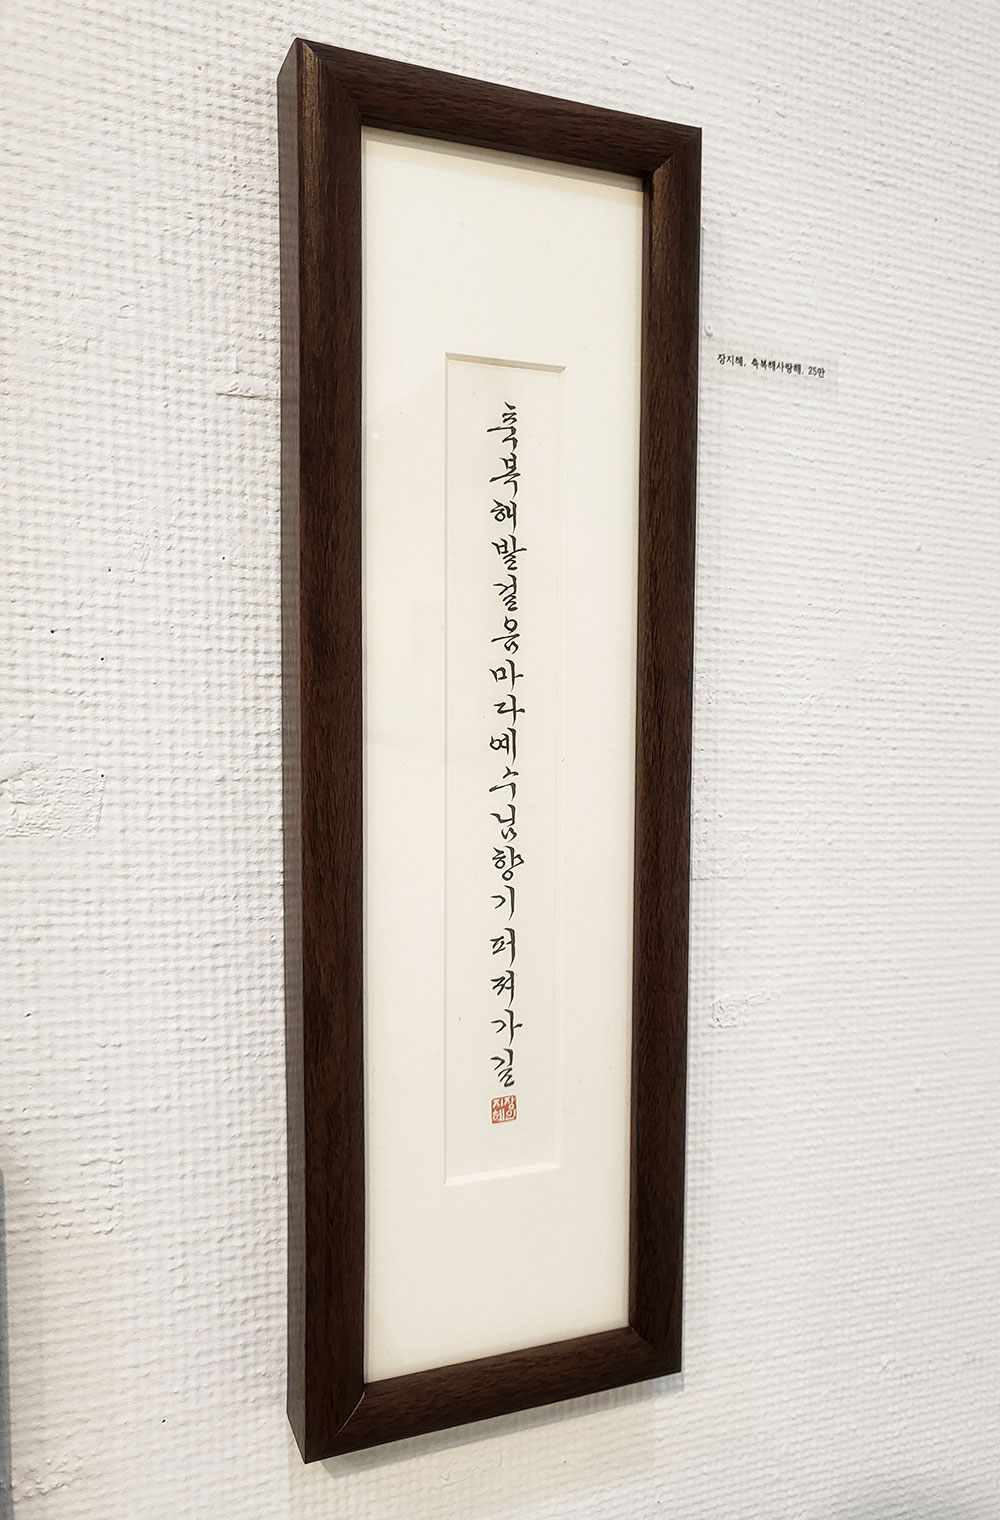 축복해발걸음마다예수님향기퍼져가길
장인
지혜
장지혜, 축복해사랑해, 25만